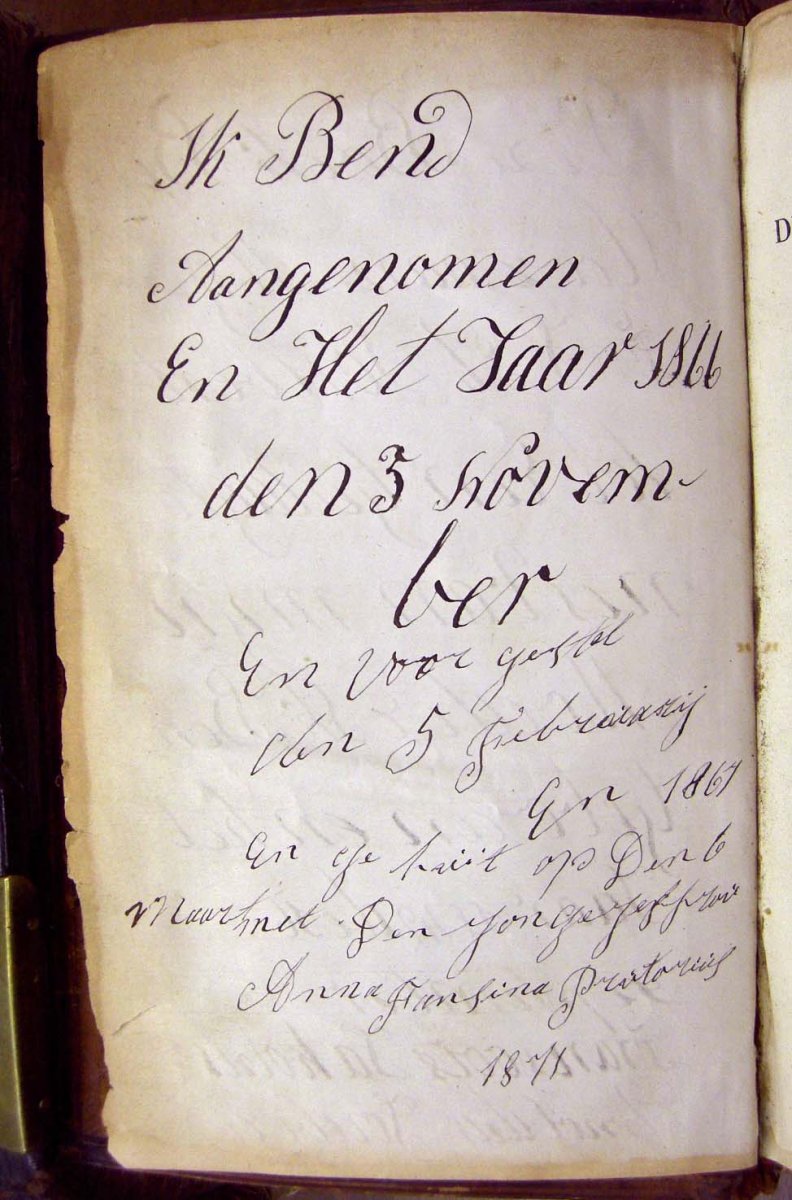 Ik Bend
Aangenomen
En Het Jaar 1866
den 3 Novem-
ber
En voor gestel
den 5 Februarij
En 1867
En ge trüit op Den 6
Maart met Den
Anna Fansina Pretorius
1871
D